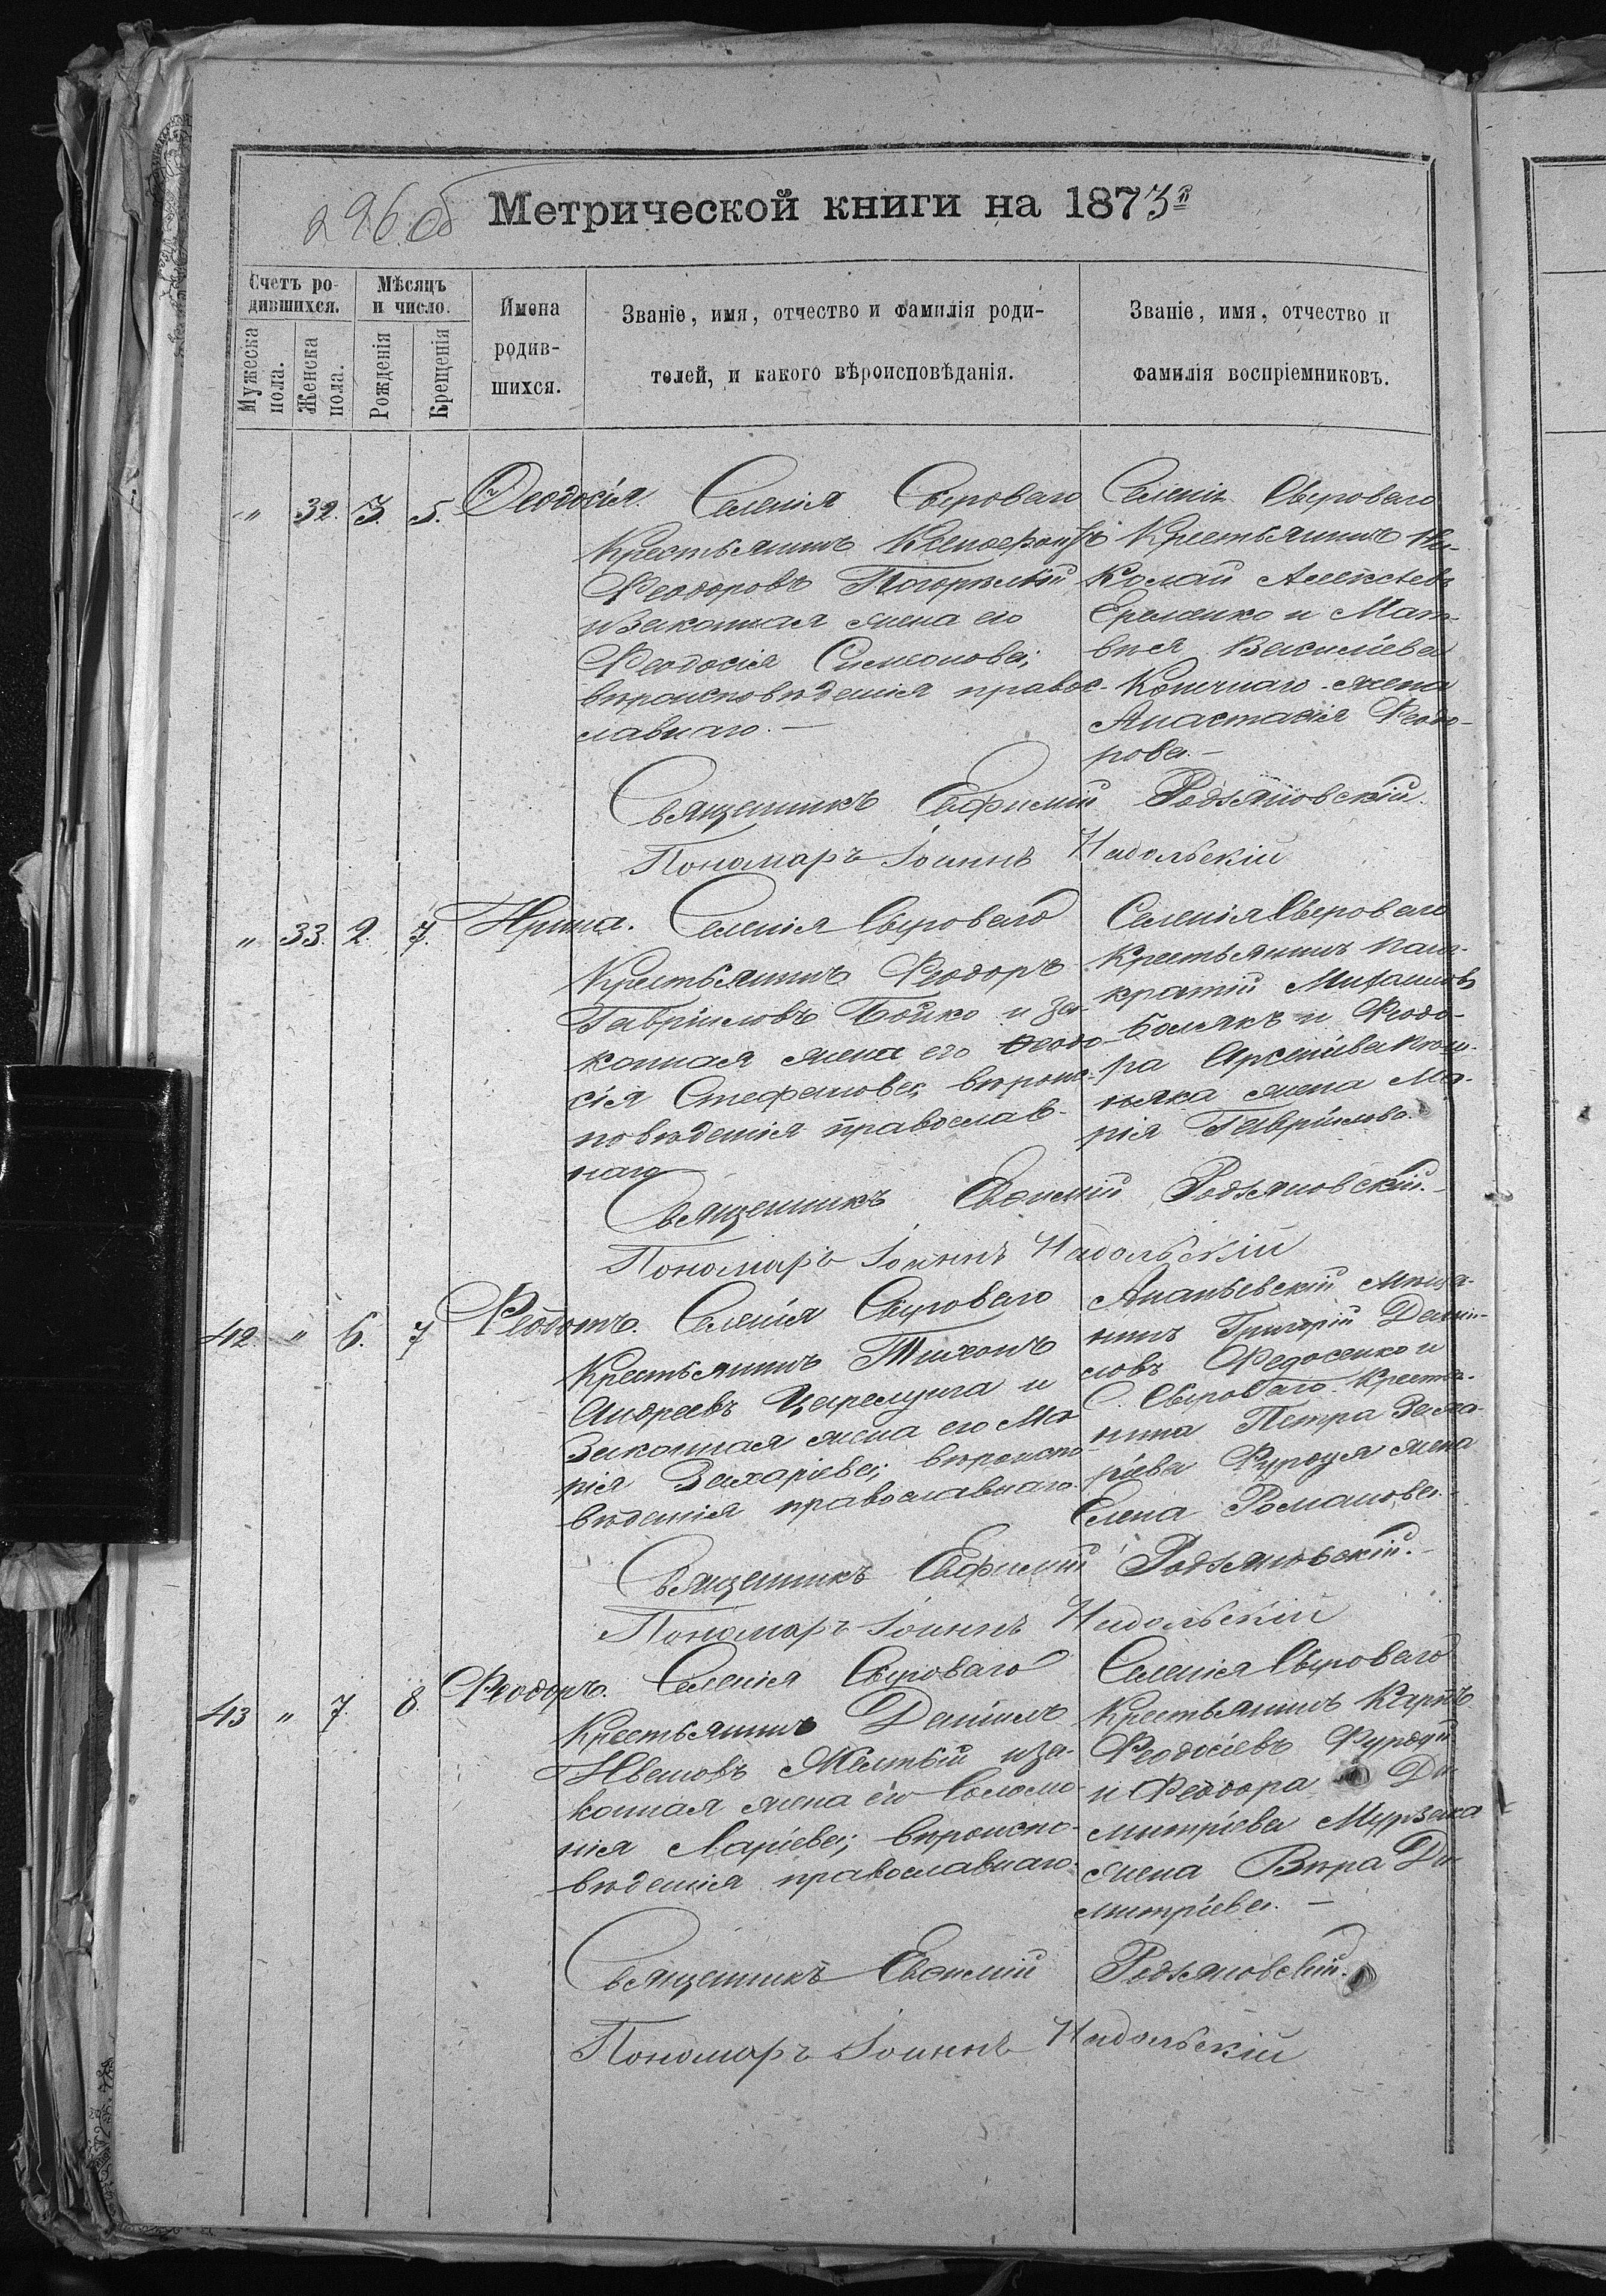 296 об Метрической книги на 1873 г
Счетъ ро-
дившихся.
Мѣсяцъ
и число.
Имена
родив-
шихся.
Званіе, имя, отчество и фамилія роди-
телей, и какого вѣроисповѣданія.
Званіе, имя, отчество и
фамилія воспріемниковъ.
Мужеска
пола.
Женска
пола.
Рожденія
Крещенія
" 32. 3. 5. Ѳеодосія.
Селенія Сыроваго
Крестьянинъ Ксенофонтъ
Ѳеодоровъ Погорѣлый
и законная жена его
Ѳеодосія Симеонова;
вѣроисповѣданія правос-
лавнаго. —
Селенія Сыроваго
Крестьянинъ Ни-
колай Алексѣевъ
Еременко и Мат-
вѣя Васильева
жена
Анастасія Ѳеодо-
рова. —
Священникъ Евфимій Родзяновскій.
Пономарь Іоаннъ Надольскій
" 33. 2. 7. Ирина.
Селенія Сыроваго
Крестьянинъ Ѳеодоръ
Гавріиловъ Бойко и за-
конная жена его Ѳеодо-
сія Стефанова; вѣроис-
повѣданія православ-
наго
Селенія Сыроваго
Крестьянинъ Пан-
кратій Михаиловъ
и Ѳеодо-
ра Арсеніева
жена Ма-
рія Гавріилова.
Священникъ Евѳимій Родзяновскій. —
Пономарь Іоаннъ Надольскій
42. " 6. 7 Ѳеодотъ.
Селенія Сыроваго
Крестьянинъ Тихонъ
Андреевъ и
Законная жена его Ма-
рія Захаріева; вѣроиспо-
вѣданія православнаго.
Ананьевскій Мѣща-
нинъ Григорій Даніи-
ловъ Федосенко и
С. Сыроваго Крестья-
нина Петра Заха-
ріева жена
Елена Романова.
Священникъ Евфимій Родзяновскій. —
Пономарь Іоаннъ Надольскій
43 " 7. 8. Ѳеодоръ.
Селенія Сыроваго
Крестьянинъ Даніилъ
Ивановъ Желтый и за-
конная жена его Соломо-
нія Ларіева; вѣроиспо-
вѣданія православнаго.
Селенія Сыроваго
Крестьянинъ Карпъ
Ѳеодосіевъ
и Ѳеодора Ди-
митріева Мурзака
жена Вѣра Ди-
митріева. —
Священникъ Евѳимій Родзяновскій.
Пономарь Іоаннъ Надольскій